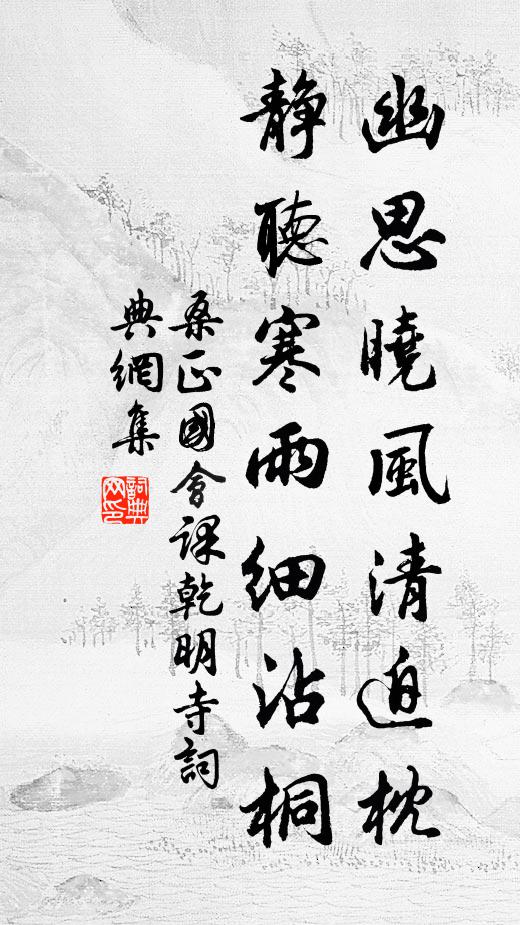 幽思曉風清迫枕
靜聽寒雨細沾桐
桑正國會課乾明寺詞
典網集
詞典
网印